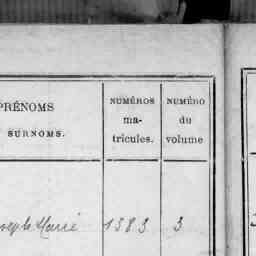 PRÉNOMS
SURNOMS.
NUMÉROS
ma-
tricules.
NUMÉRO
du
volume
Marie 1383 3